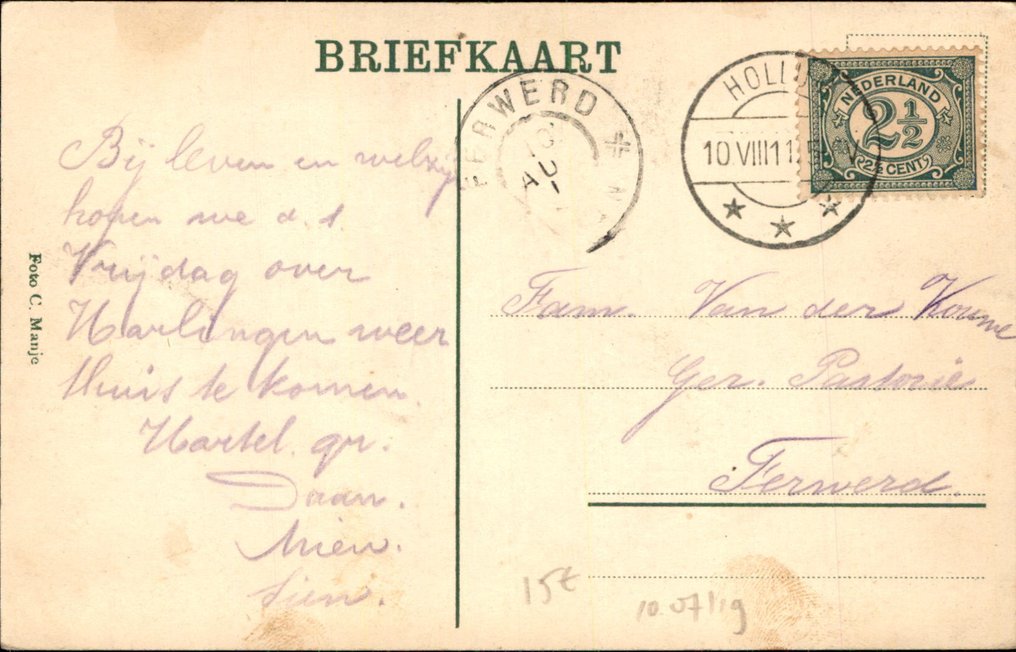 BRIEFKAART
FERWERD
HOLLU
10 VIII 11
NEDERLAND
2½
2½ CENT
Bij leven en welzijn
hopen we d.s.
Vrijdag over
Harlingen weer
thuis te komen.
Hartel. gr.
Daan.
Mien.
Sien.
Foto C. Manje
Fam. Van der
Ger. Pastorie
Ferwerd.
15€
10.07/19